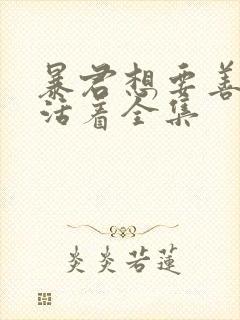 暴君想要善
活着全集
炎炎若莲